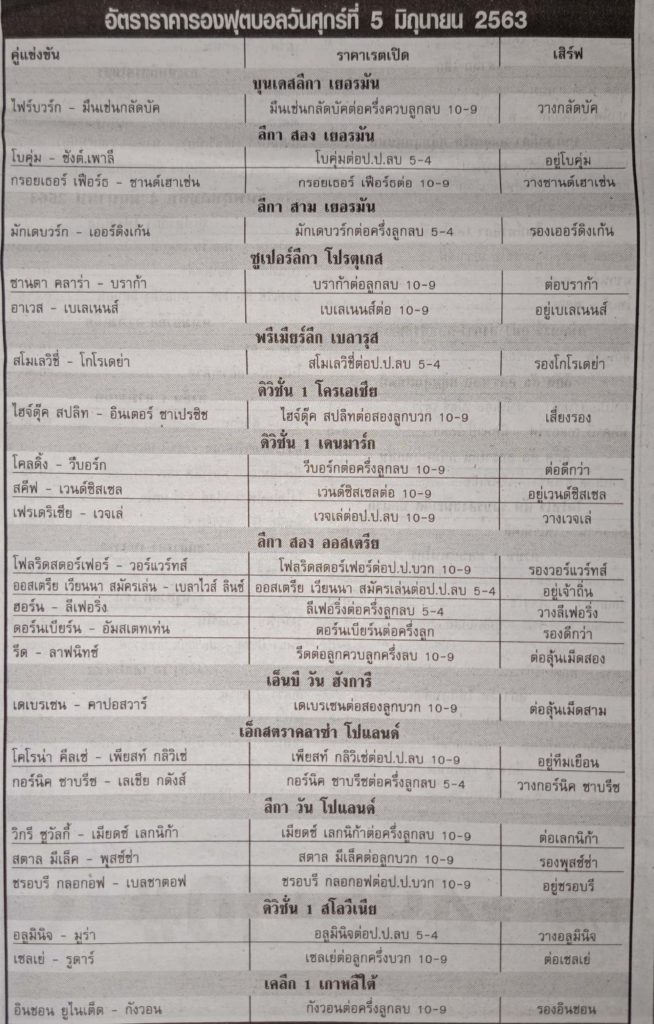 อัตราราคารองฟุตบอลวันศุกร์ที่ 5 มิถุนายน 2563
คู่แข่งขัน ราคาเรตเปิด เสิร์ฟ
บุนเดสลีกา เยอรมัน
ไฟร์บวร์ก - มึนเช่นกลัดบัค มึนเช่นกลัดบัคต่อครึ่งควบลูกลบ 10-9 วางกลัดบัค
ลีกา สอง เยอรมัน
โบคุ่ม - ซังต์.เพาลี โบคุ่มต่อป.ป.ลบ 5-4 อยู่โบคุ่ม
กรอยเธอร์ เฟือร์ธ - ซานด์เฮาเซ่น กรอยเธอร์ เฟือร์ธต่อ 10-9 วางซานด์เฮาเซ่น
ลีกา สาม เยอรมัน
มักเดบวร์ก - เออร์ดิงเก้น มักเดบวร์กต่อครึ่งลูกลบ 5-4 รองเออร์ดิงเก้น
ซูเปอร์ลีกา โปรตุเกส
ซานตา คลาร่า - บราก้า บราก้าต่อลูกลบ 10-9 ต่อบราก้า
อาเวส - เบเลเนนส์ เบเลเนนส์ต่อ 10-9 อยู่เบเลเนนส์
พรีเมียร์ลีก เบลารุส
สโมเลวิชี่ - โกโรเดย่า สโมเลวิชี่ต่อป.ป.ลบ 5-4 รองโกโรเดย่า
ดิวิชั่น 1 โครเอเชีย
ไฮจ์ดุ๊ค สปลิท - อินเตอร์ ซาเปรซิช ไฮจ์ดุ๊ค สปลิทต่อสองลูกบวก 10-9 เสี่ยงรอง
ดิวิชั่น 1 เดนมาร์ก
โคลดิ้ง - วีบอร์ก วีบอร์กต่อครึ่งลูกลบ 10-9 ต่อดีกว่า
สคีฟ - เวนด์ซิสเซล เวนด์ซิสเซลต่อ 10-9 อยู่เวนด์ซิสเซล
เฟรเดริเซีย - เวจเล่ เวจเล่ต่อป.ป.ลบ 10-9 วางเวจเล่
ลีกา สอง ออสเตรีย
โฟลริดสดอร์เฟอร์ - วอร์แวร์ทส์ โฟลริดสดอร์เฟอร์ต่อป.ป.บวก 10-9 รองวอร์แวร์ทส์
ออสเตรีย เวียนนา สมัครเล่น - เบลาไวส์ ลินซ์ ออสเตรีย เวียนนา สมัครเล่นต่อป.ป.ลบ 5-4 อยู่เจ้าถิ่น
ฮอร์น - ลีเฟอริ่ง ลีเฟอริ่งต่อครึ่งลูกลบ 5-4 วางลีเฟอริ่ง
ดอร์นเบียร์น - อัมสเตทเท่น ดอร์นเบียร์นต่อครึ่งลูก รองดีกว่า
รีด - ลาฟนิทซ์ รีดต่อลูกควบลูกครึ่งลบ 10-9 ต่อลุ้นเม็ดสอง
เอ็นบี วัน ฮังการี
เดเบรเซน - คาปอสวาร์ เดเบรเซนต่อสองลูกบวก 10-9 ต่อลุ้นเม็ดสาม
เอ็กสตราคลาซ่า โปแลนด์
โคโรน่า คีลเซ่ - เพียสท์ กลิวิเซ่ เพียสท์ กลิวิเซ่ต่อป.ป.ลบ 10-9 อยู่ทีมเยือน
กอร์นิค ซาบรีซ - เลเชีย กดังส์ กอร์นิค ซาบรีซต่อครึ่งลูกลบ 5-4 วางกอร์นิค ซาบรีซ
ลีกา วัน โปแลนด์
วิกรี ซูวัลกี้ - เมียดซ์ เลกนิก้า เมียดซ์ เลกนิก้าต่อครึ่งลูกลบ 10-9 ต่อเลกนิก้า
สตาล มีเล็ค - พุสซ์ซ่า สตาล มีเล็คต่อลูกบวก 10-9 รองพุสซ์ซ่า
ชรอบรี กลอกอฟ - เบลชาตอฟ ชรอบรี กลอกอฟต่อป.ป.บวก 10-9 อยู่ชรอบรี
ดิวิชั่น 1 สโลวีเนีย
อลูมินิจ - มูร่า อลูมินิจต่อป.ป.ลบ 5-4 วางอลูมินิจ
เซลเย่ - รูดาร์ เซลเย่ต่อลูกครึ่งบวก 10-9 ต่อเซลเย่
เคลีก 1 เกาหลีใต้
อินชอน ยูไนเต็ด - กังวอน กังวอนต่อครึ่งลูกลบ 10-9 รองอินชอน